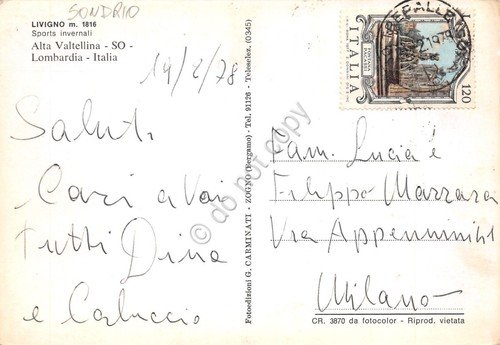 SONDRIO
LIVIGNO m. 1816
Sports invernali
Alta Valtellina - SO -
Lombardia - Italia
19/2/78
Saluti
Cari a Voi
Tutti Dina
e Carluccio
Fotoedizioni G. CARMINATI - ZOGNO (Bergamo) - Tel. 91126 - Teleselez. (0345)
do not copy
ITALIA
120
Fam. Lucia e
Filippo Mazzara
Via Appennini
Milano
CR. 3870 da fotocolor - Riprod. vietata